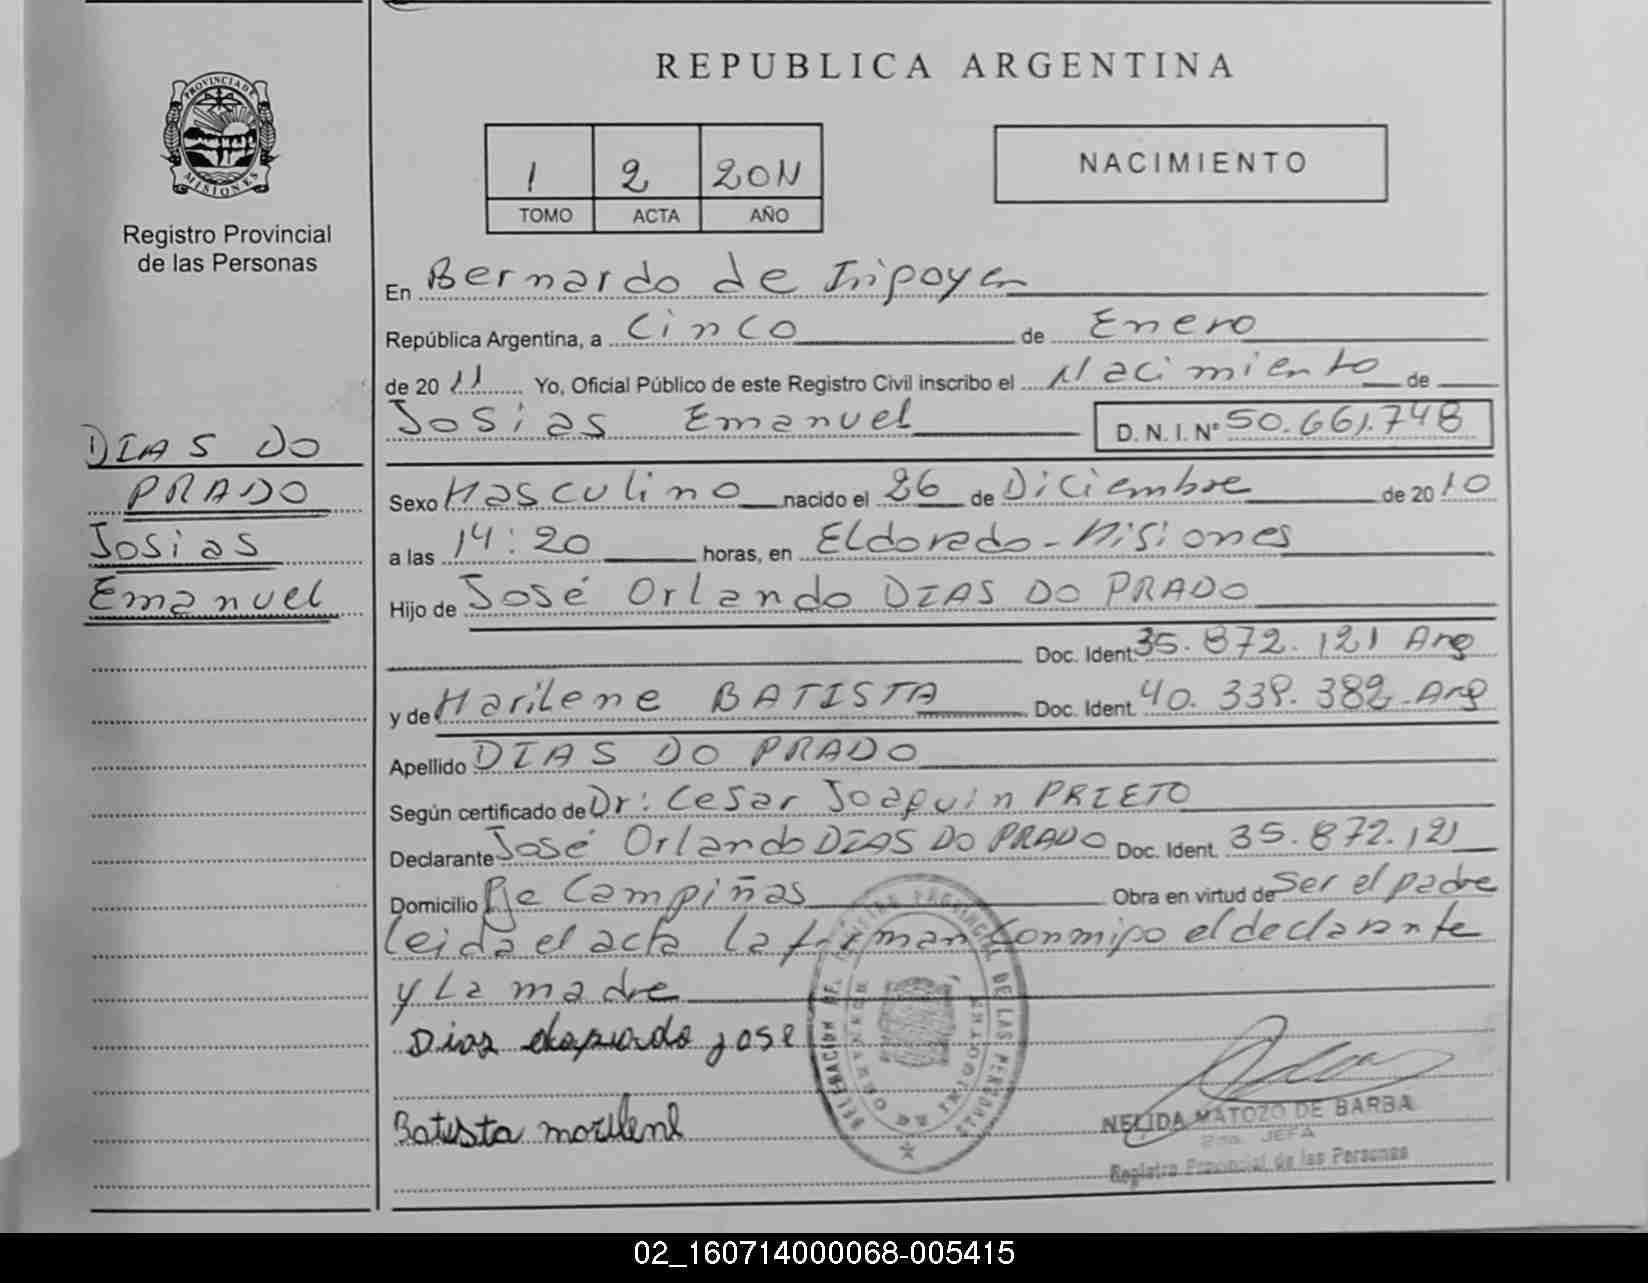 PROVINCIA DE
MISIONES
Registro Provincial
de las Personas
DIAS DO
PRADO
Josias
Emanuel
REPUBLICA ARGENTINA
1 2 2011
TOMO ACTA AÑO
NACIMIENTO
En Bernardo de Iripoyen
República Argentina, a Cinco de Enero
de 20 11 Yo, Oficial Público de este Registro Civil inscribo el Nacimiento de
Josias Emanuel D.N.I. Nº 50.661.748
Sexo Masculino nacido el 26 de Diciembre de 20 10
a las 14:20 horas, en Eldorado - Misiones
Hijo de José Orlando DIAS DO PRADO
Doc. Ident. 35.872.121 Arg
y de Marilene BATISTA Doc. Ident. 40.339.382 - Arg
Apellido DIAS DO PRADO
Según certificado de Dr: Cesar Joaquin PRIETO
Declarante José Orlando DIAS DO PRADO Doc. Ident. 35.872.121
Domicilio Pje Campiñas Obra en virtud de Ser el padre
leida el acta la firman conmigo el declarante
y la madre
Dias doprado jose
Batista marilene
NELIDA MATOZO DE BARBA
2da. JEFA
Registro Provincial de las Personas
02_160714000068-005415